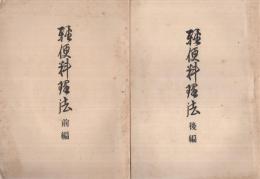 軽便料理法
前編
軽便料理法
後編